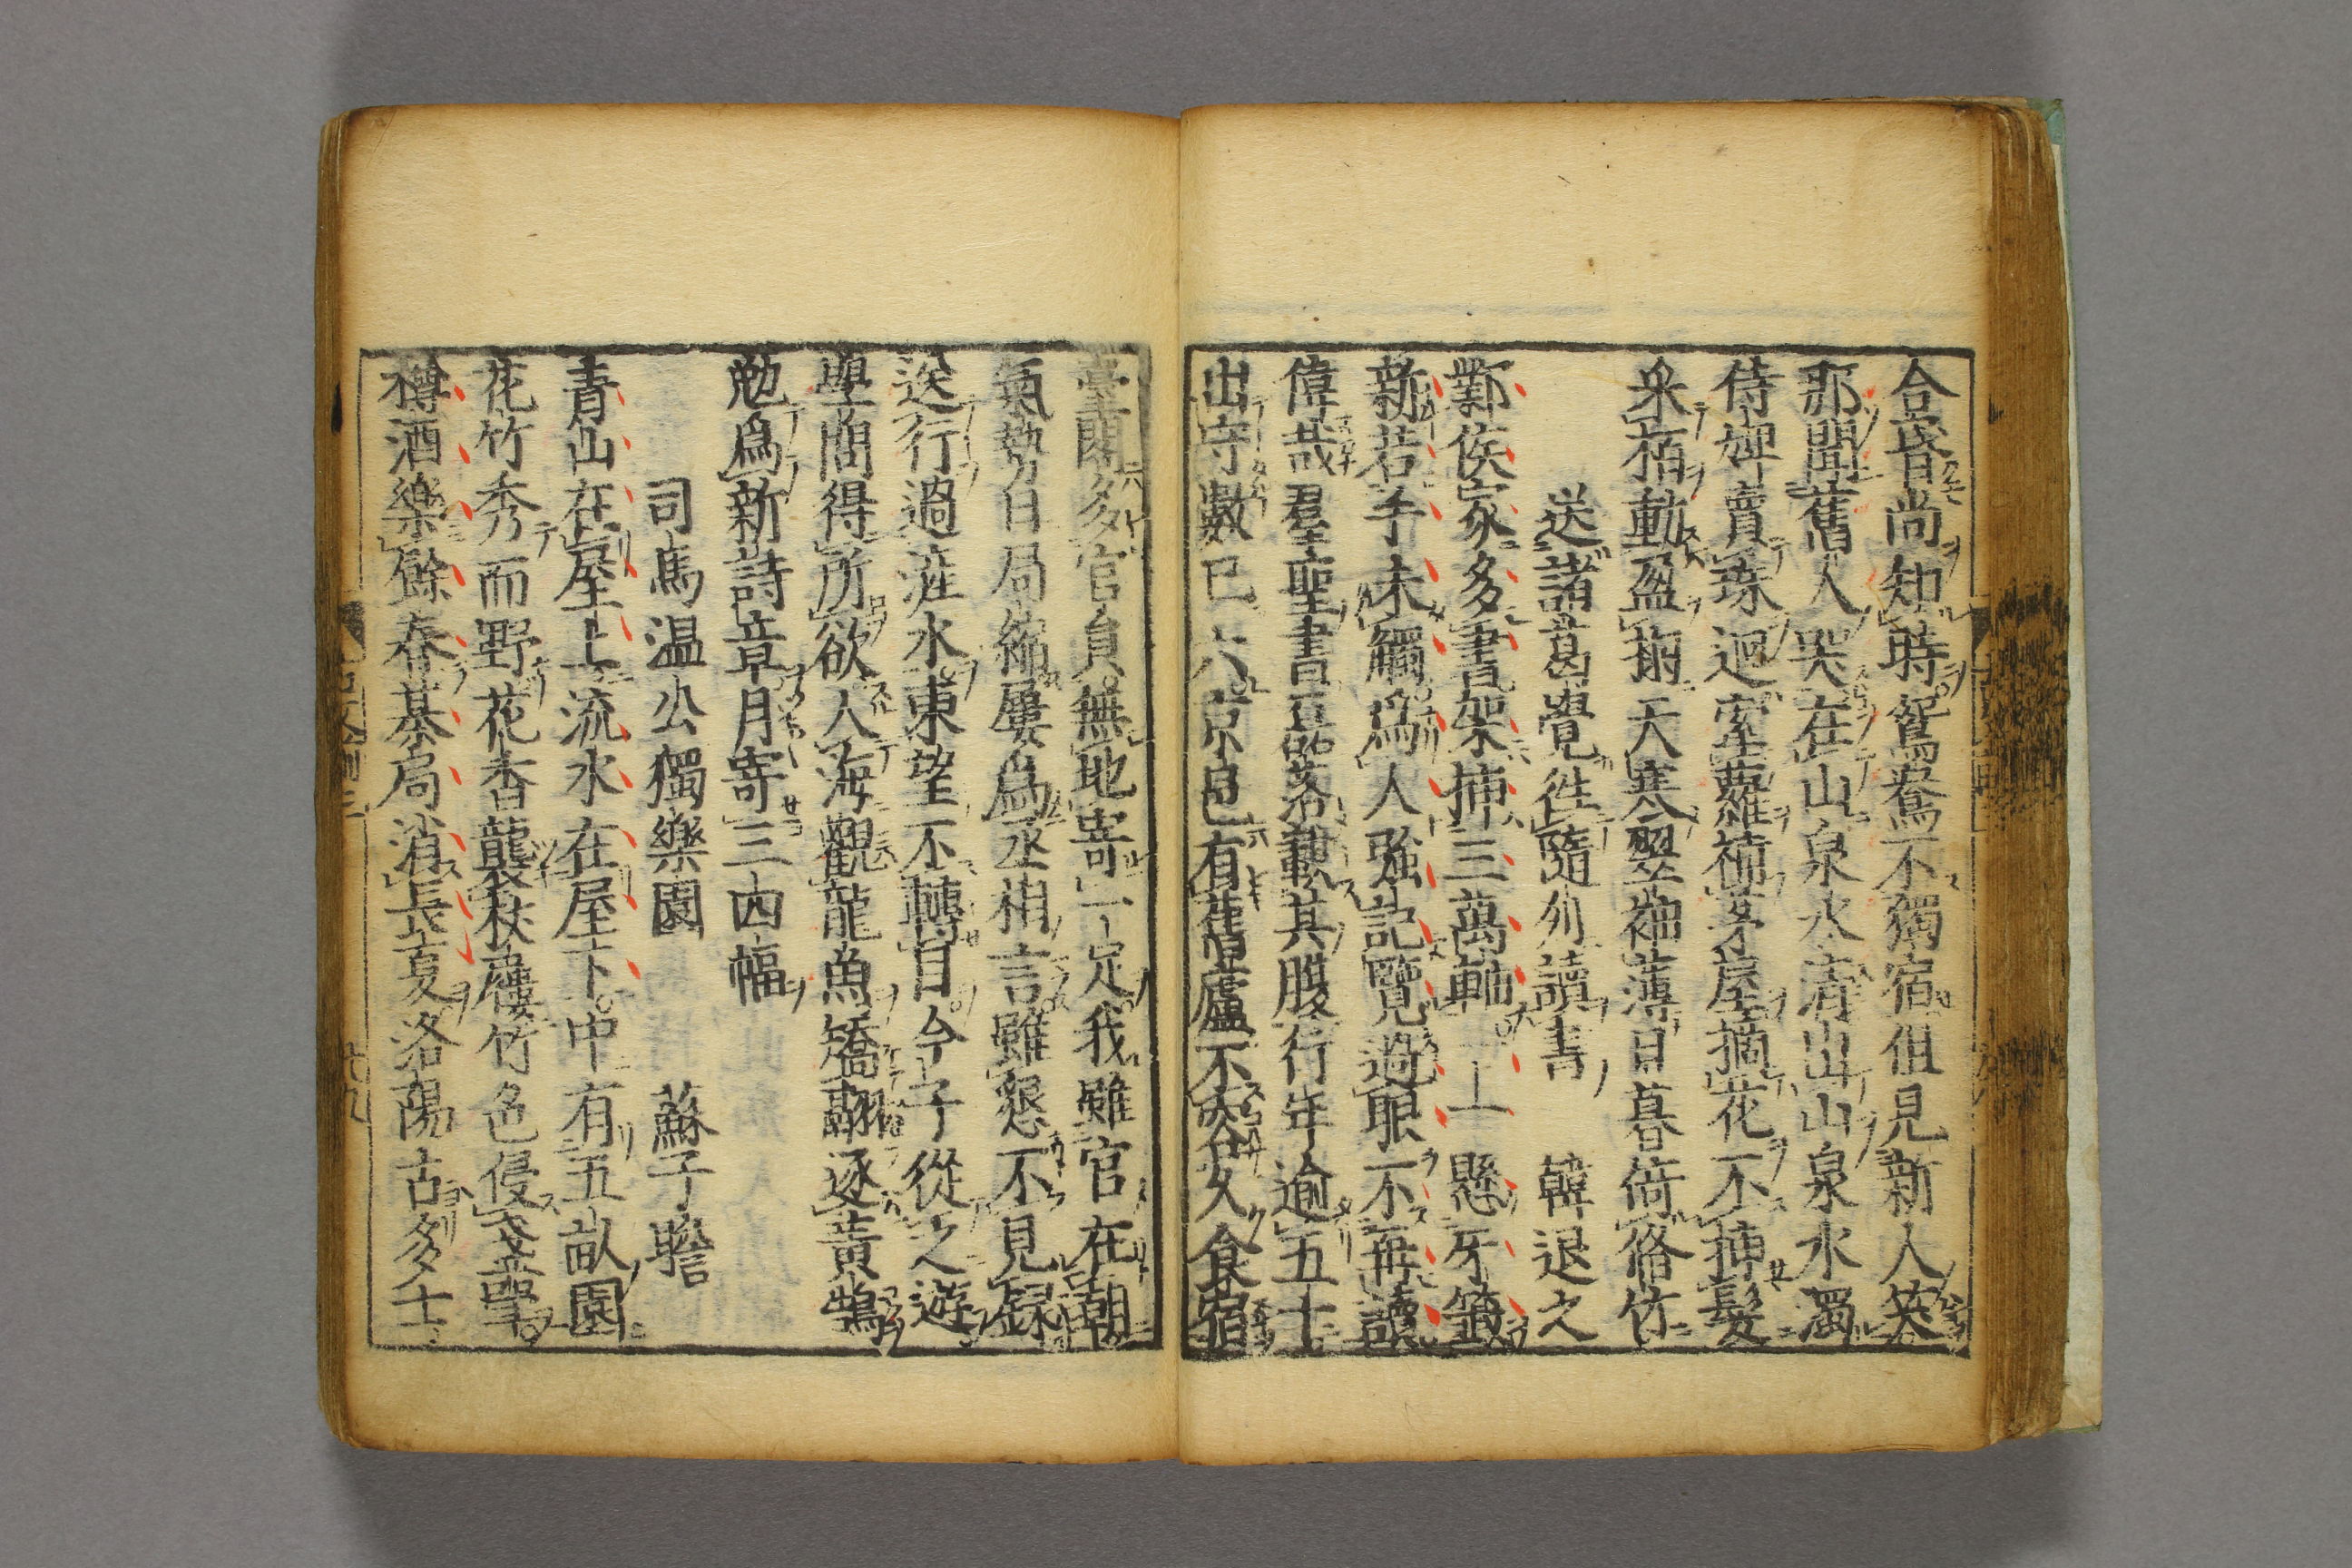 合昏尚知時鴛鴦不獨宿但見新人笑
那聞舊人哭在山泉水清出山泉水濁
侍婢賣珠迴牽蘿補茅屋摘花不挿髮
采栢動盈掬天寒翠袖薄日暮倚脩竹
送諸葛覺徃隨州讀書 韓退之
鄴侯家多書架挿三萬軸一一懸牙籤
新若手未觸爲人強記覽過眼不再讀
偉哉羣聖書磊落載其腹行年逾五十
出守數已六京邑有舊廬不容久食宿
臺閣多官員無地寄一足我雖官在朝
氣勢日局縮屢爲丞相言雖懇不見録
送行過滻水東望不轉目今子從之遊
學問得所欲入海觀龍魚矯翮逐黃鵠
勉爲新詩章月寄三四幅
司馬温公獨樂園 蘇子瞻
青山在屋上流水在屋下中有五畝園
花竹秀而野花香襲杖屨竹色侵盞斝
樽酒樂餘春棊局消長夏洛陽古多士
十九